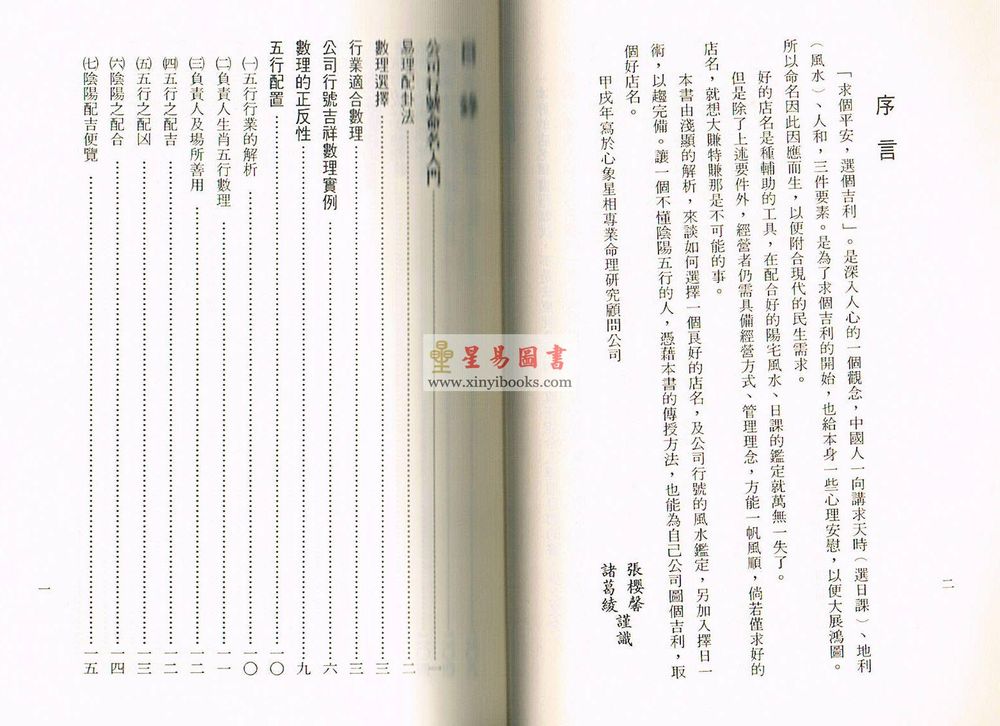 序言
「求個平安，選個吉利」。是深入人心的一個觀念，中國人一向講求天時（選日課）、地利
（風水）、人和，三件要素。是為了求個吉利的開始，也給本身一些心理安慰，以便大展鴻圖。
所以命名因此因應而生，以便附合現代的民生需求。
好的店名是種輔助的工具，在配合好的陽宅風水、日課的鑑定就萬無一失了。
但是除了上述要件外，經營者仍需具備經營方式、管理理念，方能一帆風順，倘若僅求好的
店名，就想大賺特賺那是不可能的事。
本書由淺顯的解析，來談如何選擇一個良好的店名，及公司行號的風水鑑定，另加入擇日一
術，以趨完備。讓一個不懂陰陽五行的人，憑藉本書的傳授方法，也能為自己公司圖個吉利，取
個好店名。
甲戌年寫於心象星相專業命理研究顧問公司
張櫻馨
諸葛綾
謹識
二
目錄
公司行號命名入門……一
易理配卦法……二
數理選擇……三
行業適合數理……三
公司行號吉祥數理實例……六
數理的正反性……九
五行配置……一〇
㈠五行行業的解析……一〇
㈡負責人生肖五行數理……一一
㈢負責人及場所善用……一二
㈣五行之配吉……一二
㈤五行之配凶……一三
㈥陰陽之配合……一四
㈦陰陽配吉便覽……一五
一
星易圖書
www.xinyibooks.com